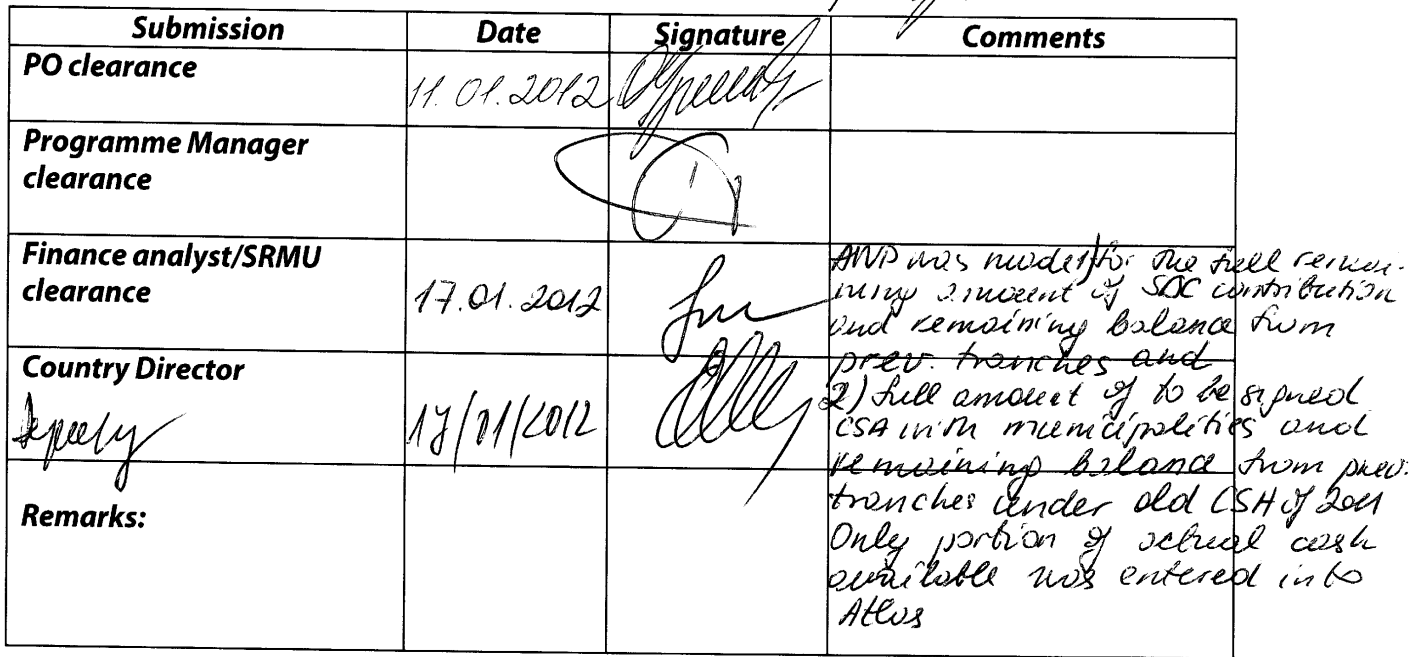 Submission Date Signature Comments
PO clearance
11.01.2012
Programme Manager
clearance
Finance analyst/SRMU
clearance
17.01.2012
AWP was made 1) for the full remai-
ning amount of SDC contribution
and remaining balance from
prev. tranches and
2) full amount of to be signed
CSA with municipalities and
remaining balance from prev.
tranches under old CSA of 2011
Only portion of actual cash
available was entered into
Atlas
Country Director
Deputy
17/01/2012
Remarks: